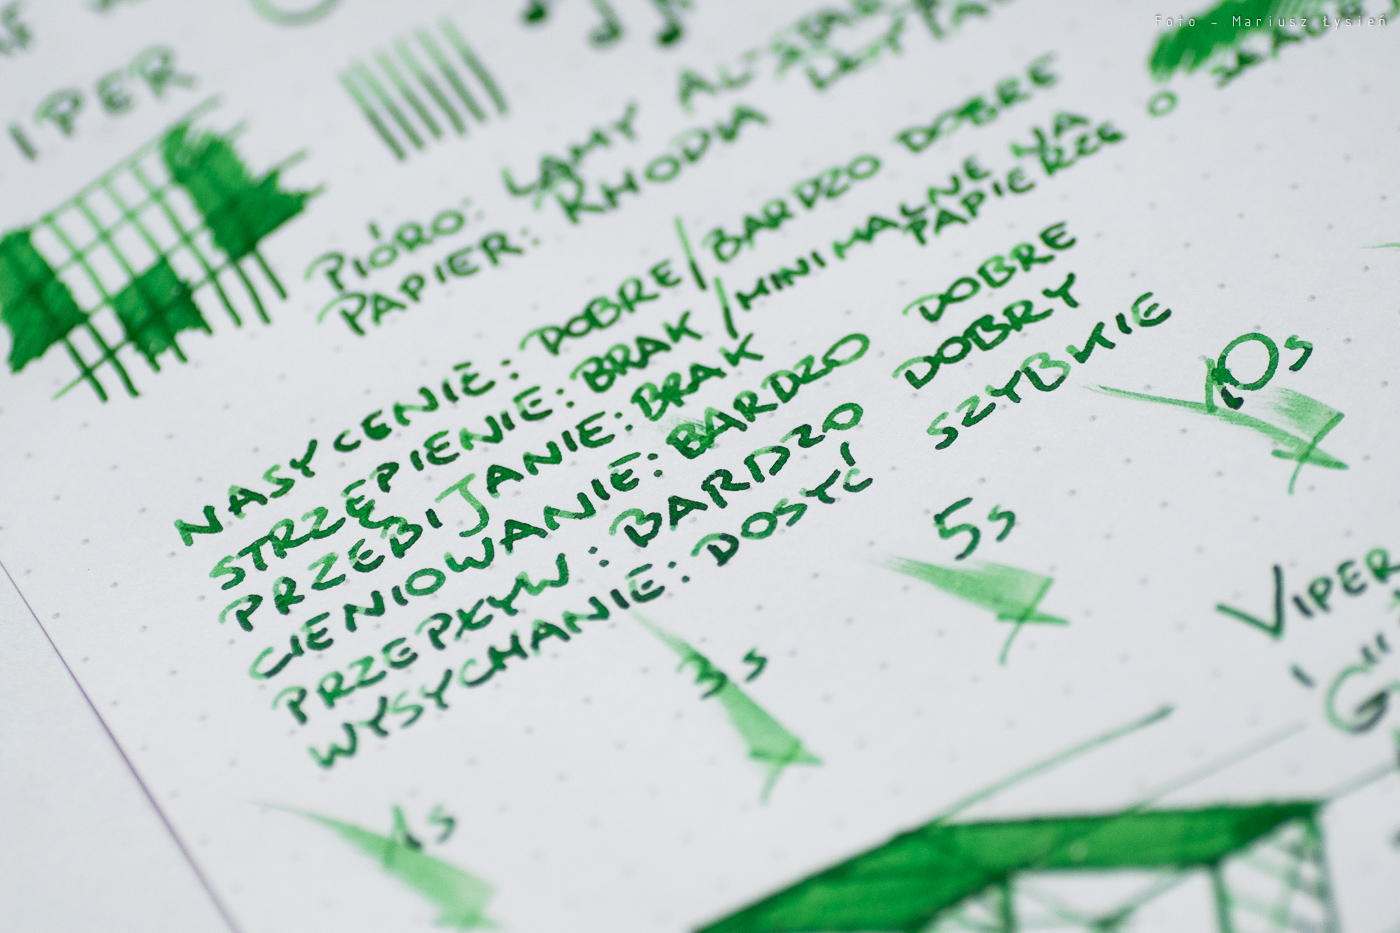 Foto - Mariusz Łysień
IPER
PIÓRO: LAMY AL-STAR
PAPIER: RHODIA
NASYCENIE: DOBRE/BARDZO DOBRE
STRZĘPIENIE: BRAK/MINIMALNE NA
PAPIERZE O
PRZEBIJANIE: BRAK
CIENIOWANIE: BARDZO DOBRE
PRZEPŁYW: BARDZO DOBRY
WYSYCHANIE: DOSYĆ SZYBKIE
10s
5s
3s
1s
VIPER
"G"